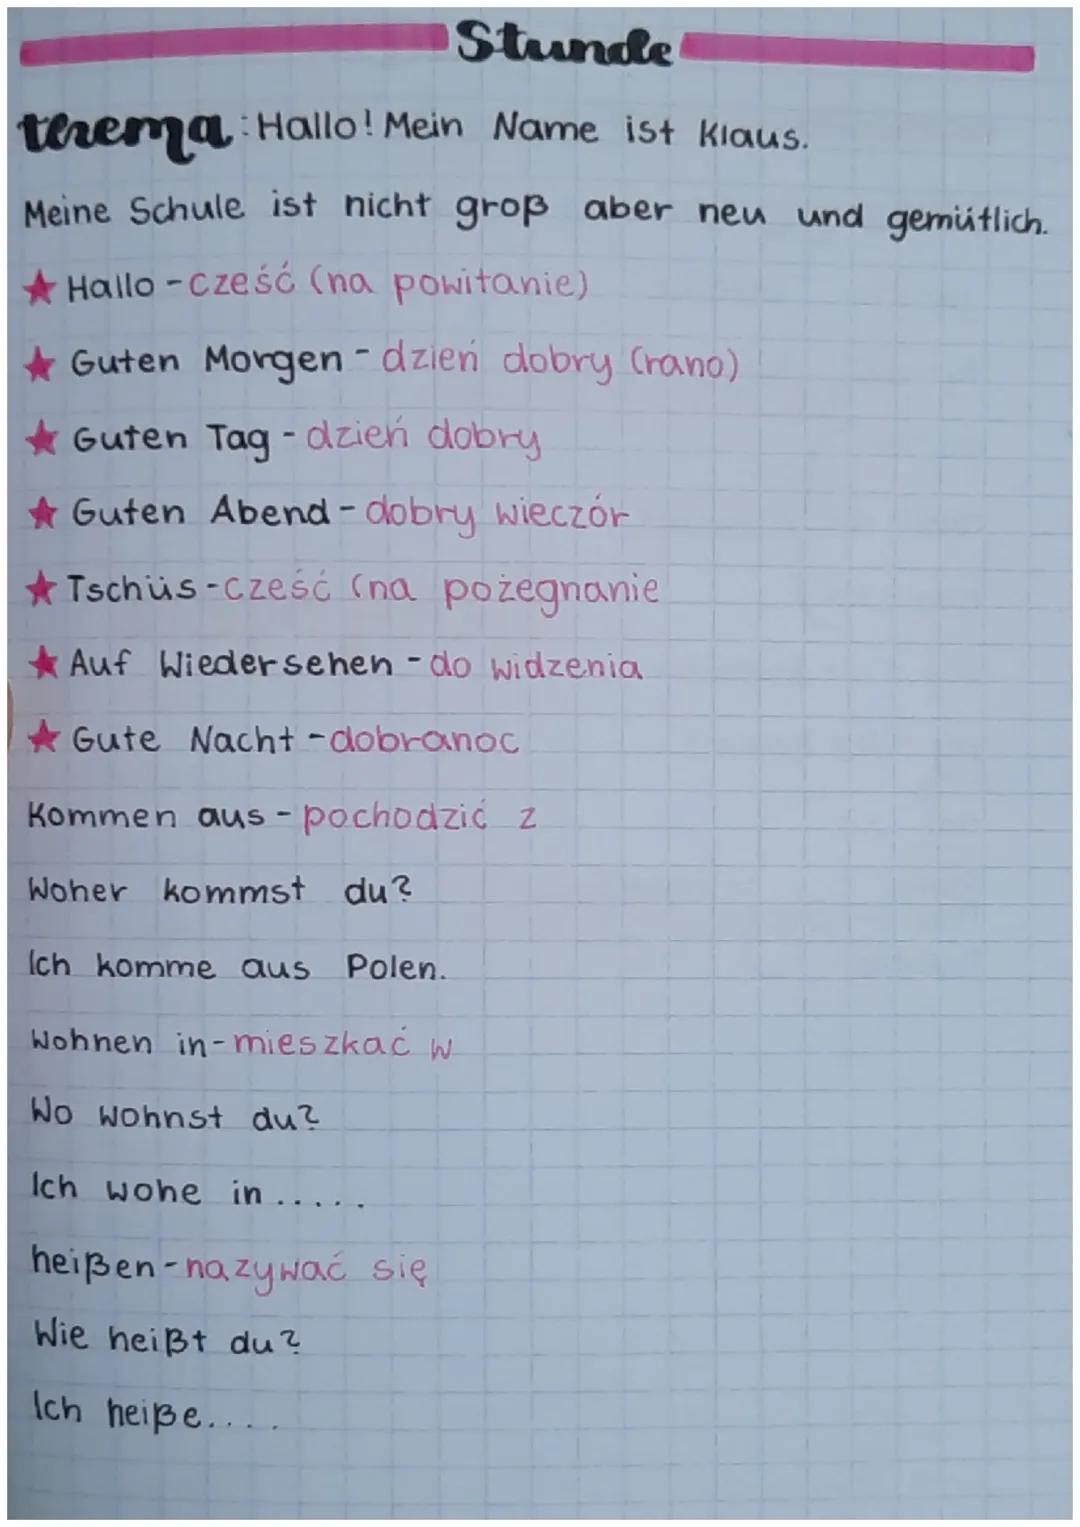 Stunde
terema: Hallo! Mein Name ist Klaus.
Meine Schule ist nicht groß aber neu und gemütlich.
Hallo - cześć (na powitanie)
Guten Morgen - dzień dobry (rano)
Guten Tag - dzień dobry
Guten Abend - dobry wieczór
Tschüs - cześć (na pożegnanie
Auf Wiedersehen - do widzenia
Gute Nacht - dobranoc
Kommen aus - pochodzić z
Woher kommst du?
Ich komme aus Polen.
Wohnen in - mieszkać w
Wo wohnst du?
Ich wohe in .....
heißen - nazywać się
Wie heißt du?
Ich heiße....